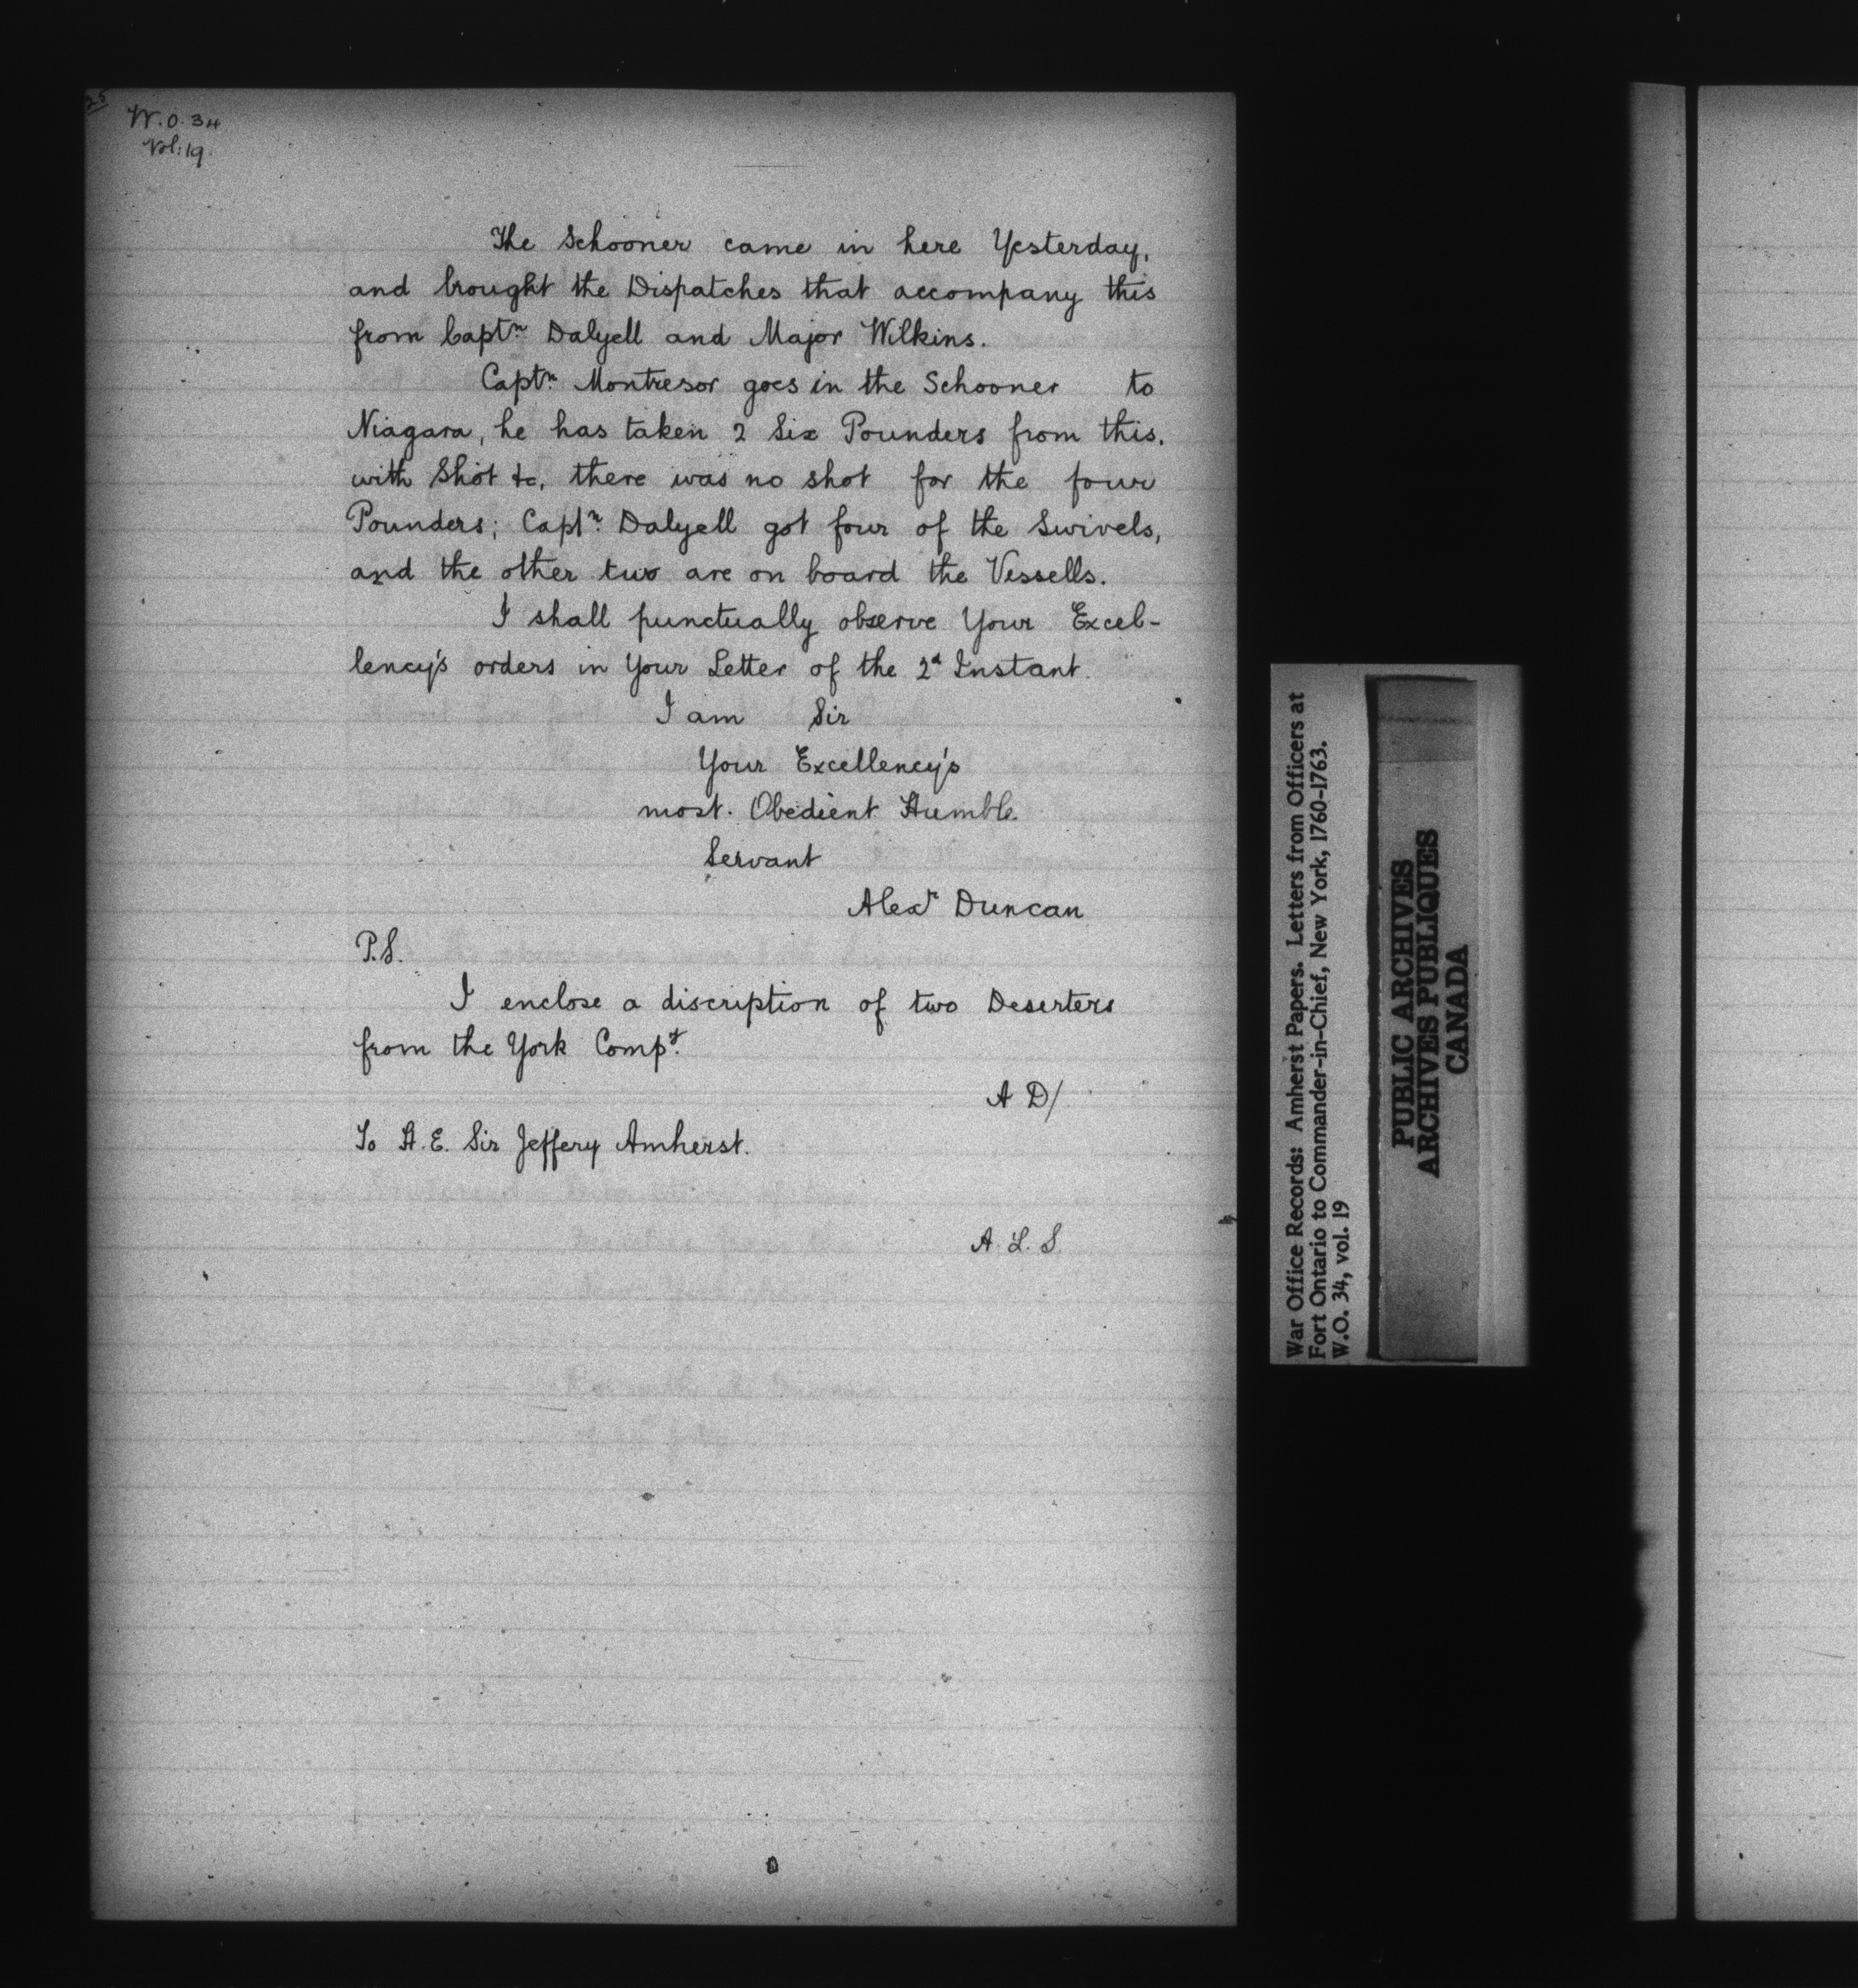 25
W.O. 34
Vol: 19.
The Schooner came in here Yesterday,
and brought the Dispatches that accompany this
from Captn. Dalyell and Major Wilkins.
Captn. Montresor goes in the Schooner to
Niagara, he has taken 2 Six Pounders from this,
with Shot &c, there was no shot for the four
Pounders; Captn. Dalyell got four of the Swivels,
and the other two are on board the Vessells.
I shall punctually observe Your Excel-
lency's orders in Your Letter of the 2d Instant.
I am Sir
Your Excellency's
most. Obedient Humble
Servant
Alexr Duncan
P.S.
I enclose a discription of two Deserters
from the York Compy.
A D/
To H.E. Sir Jeffery Amherst.
A. L. S.
War Office Records: Amherst Papers. Letters from Officers at
Fort Ontario to Commander-in-Chief, New York, 1760-1763.
W.O. 34, vol. 19
PUBLIC ARCHIVES
ARCHIVES PUBLIQUES
CANADA